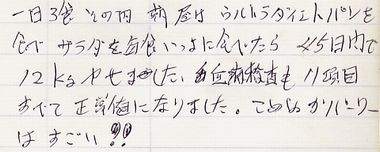 一日3食 その内 朝昼は ウルトラダイエットパンを
食べ サラダを毎食いっしょに食べたら 45日内で
12kgやせました、血液検査も 11項目
すべて 正常値になりました。こめらカリバリー
はすごい!!